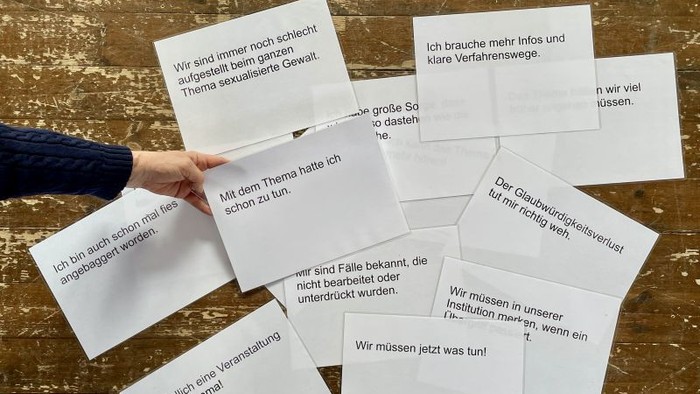 Wir sind immer noch schlecht
aufgestellt beim ganzen
Thema sexualisierte Gewalt.
Ich brauche mehr Infos und
klare Verfahrenswege.
wir viel
müssen.
große
so dastehe
Mit dem Thema hatte ich
schon zu tun.
Der Glaubwürdigkeitsverlust
tut mir richtig weh.
Ich bin auch schon mal fies
angebaggert worden.
Mir sind Fälle bekannt, die
nicht bearbeitet oder
unterdrückt wurden.
Wir müssen in unserer
Institution merken, wenn ein
Wir müssen jetzt was tun!
eine Veranstaltung